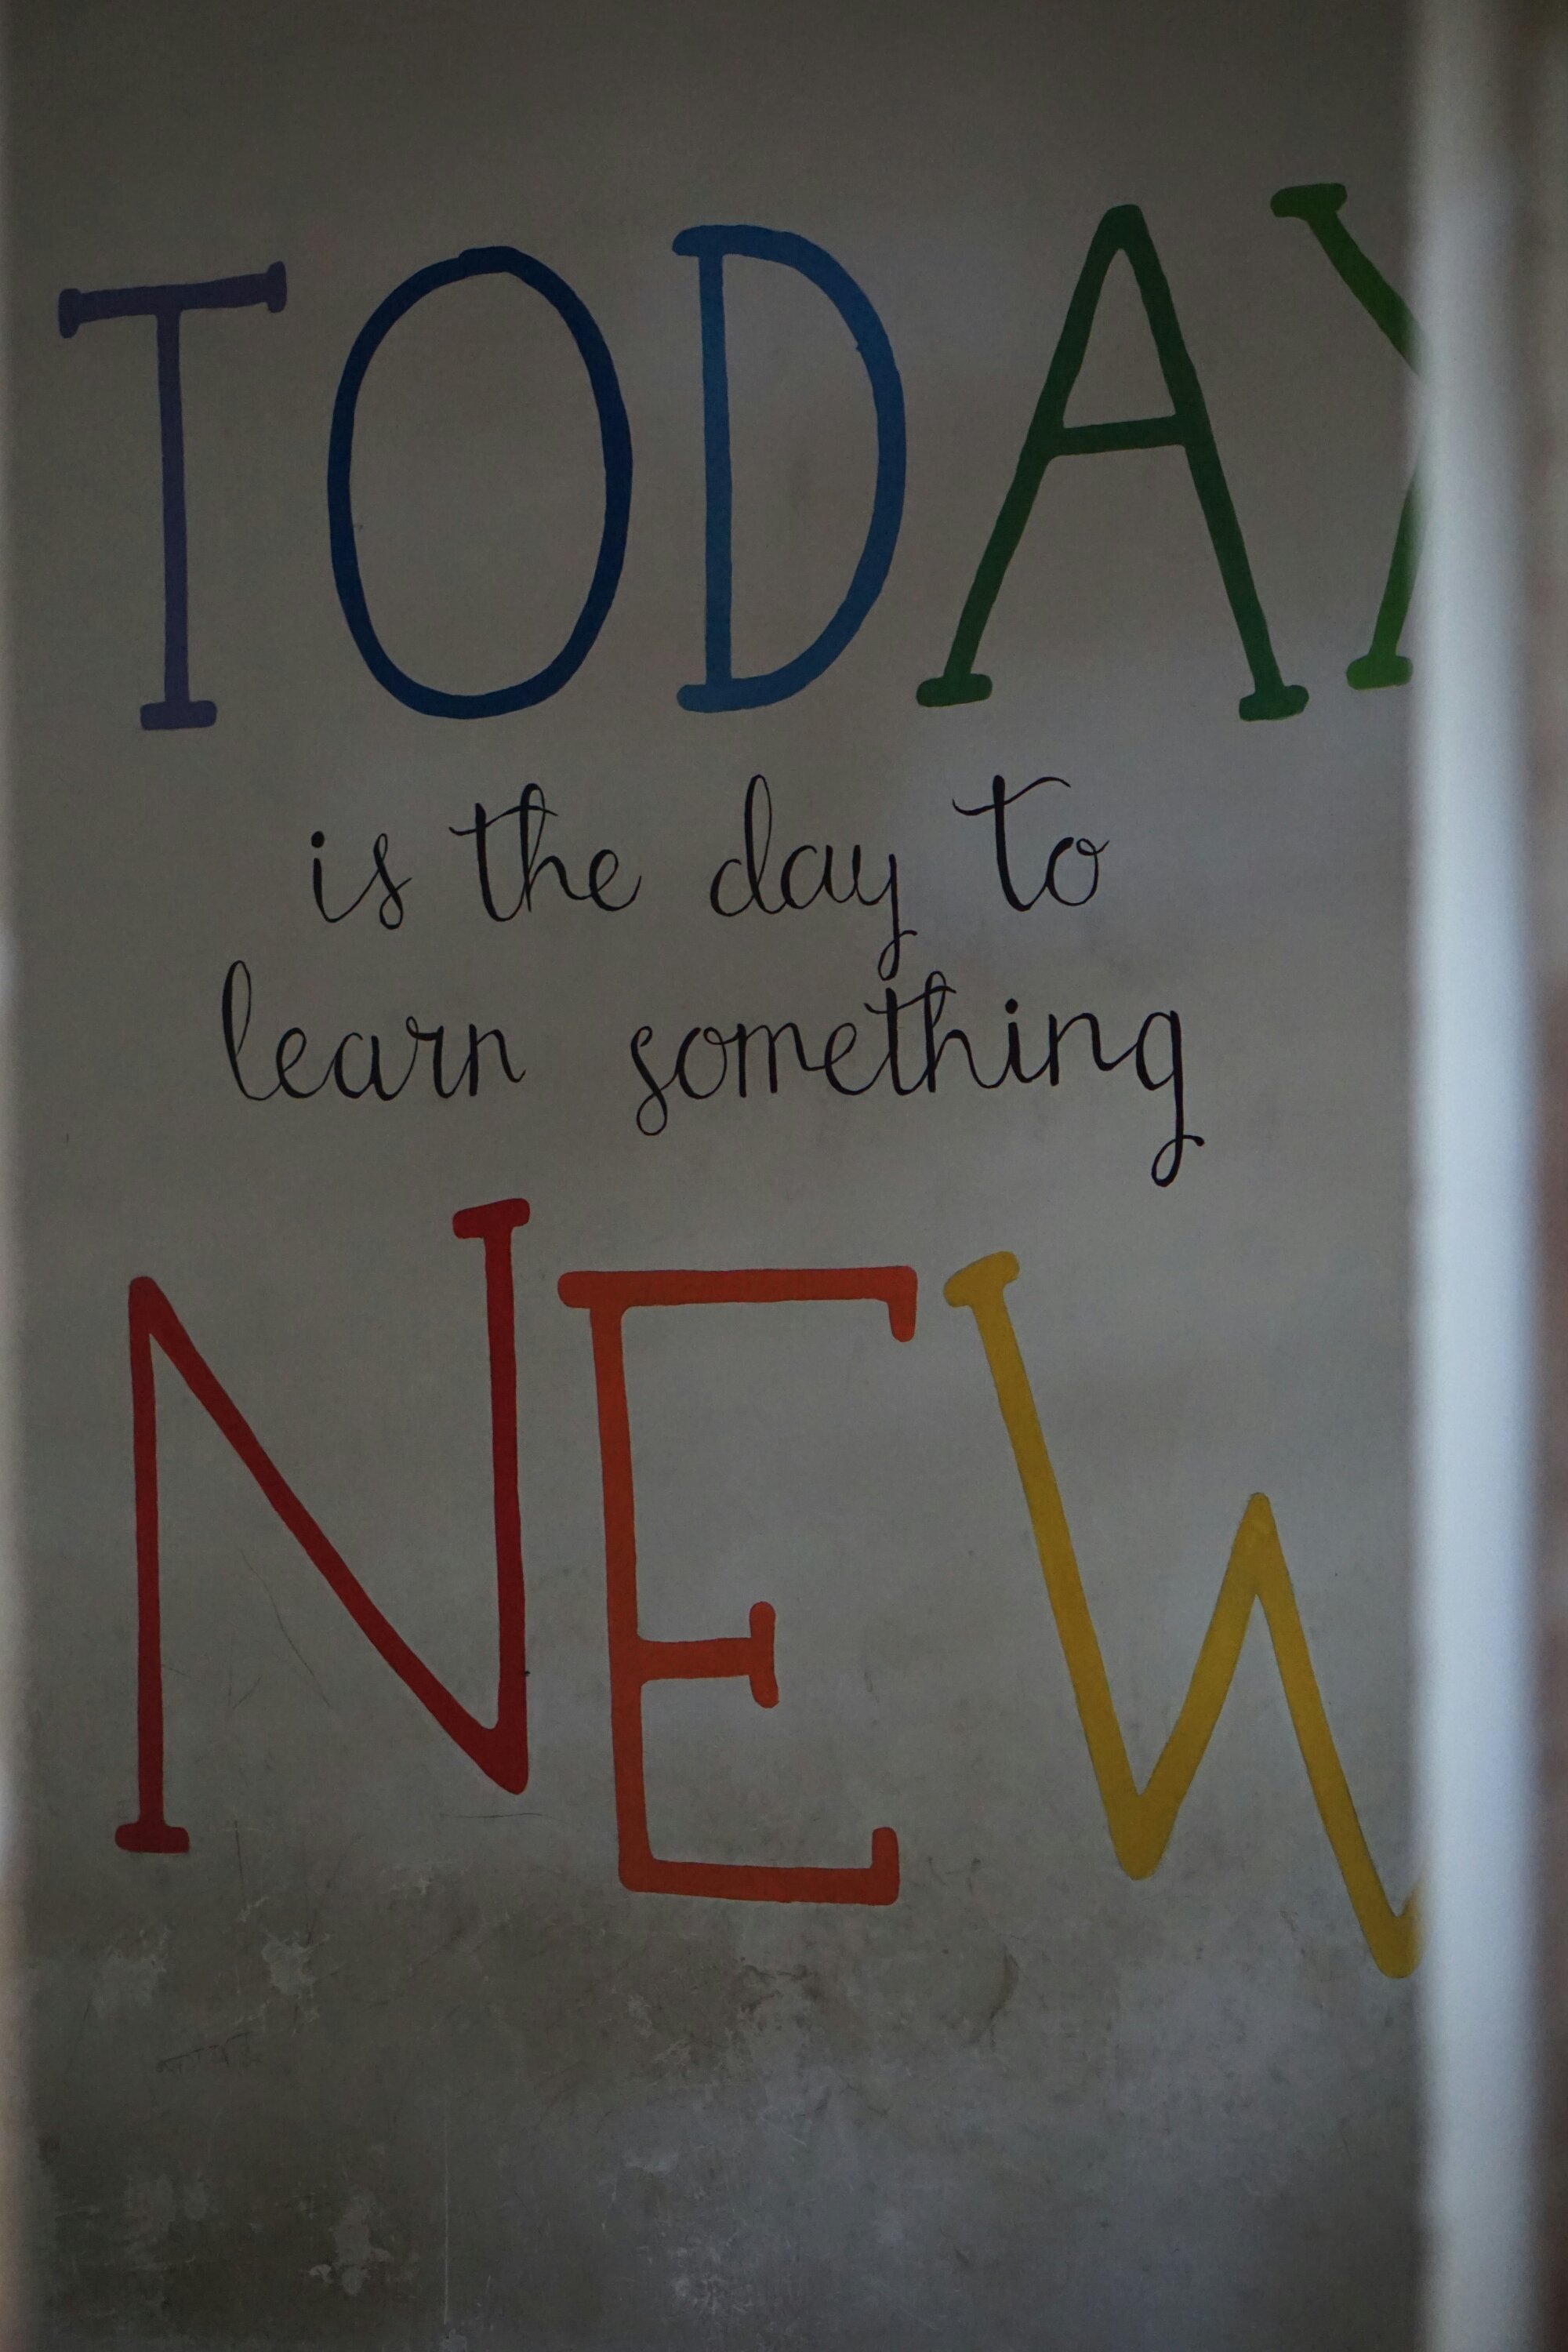 TODAY
is the day to
learn something
NEW